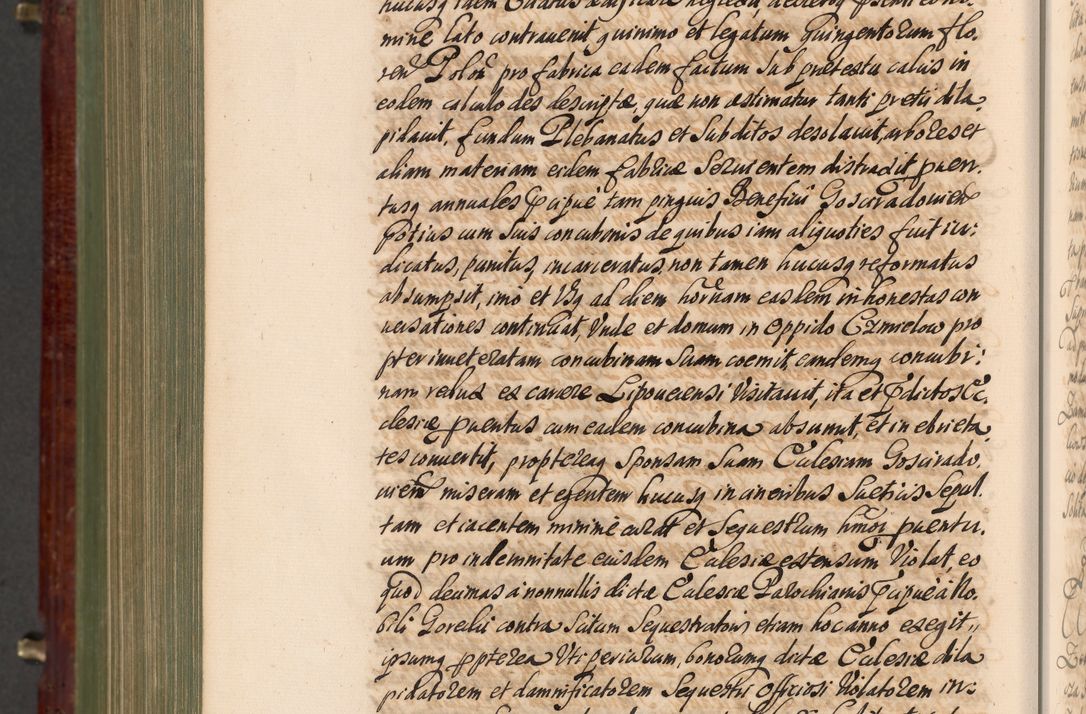 mine lato contrauenit, quinimo et legatum Quingentorum flo,
ren Polon pro fabrica eadem factum sub prætextu calcis in
eodem calculo des descriptæ, quæ non æstimatur tanti pretii dila,
pidauit, fundum Plebanatus et subditos desolauit, arbores et
aliam materiam eidem fabricæ seruientem distraxit prouen,
tusq annuales Ppipuè tam pinguis Beneficii Gosciradouien
potius cum suis concubinis de quibus iam aliquoties fuit iu,
dicatus, punitus, incarceratus, non tamen hucusq reformatus
absumpsit, imo et Usq ad diem hornam easdem inhonestas con
uersationes continuat, Unde et domum in oppido Czmielow pro
pter inueteratam concubinam suam coemit, eandemq concubi,
nam rebus ex canere Lipouiensi Visitauit, ita et Pdictos Ec,
clesiæ prouentus cum eadem concubina absumit, et in ebrieta,
tes conuertit, proptereaq Sponsam suam Ecclesiam Goscirado,
uien miseram et egentem hucusq in cineribus suæ sepul,
tam et iacentem minimè curat et Sequestrum hmoi prouentu,
um pro indemnitate eiusdem Ecclesiæ extensum Violat, eo
quod decimas à nonnullis dictæ Ecclesiæ Parochianis Ppipuè à No,
bili Gorecki contra scitum Sequestratoris etiam hoc anno exegit,,
ipsumq ppterea Uti periurum, bonorumq dictæ Ecclesiæ dila
pidatorem et damnificatorem Sequestri officiosi Violatorem in,